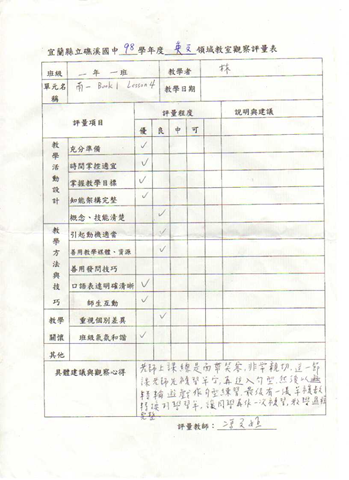 宜蘭縣立礁溪國中 98 學年度 英文 領域教室觀察評量表
班級 一年一班 教學者 林
單元名稱 南一 Book 1 Lesson 4 教學日期
評量項目 評量程度 說明與建議
優 良 中 可
教學活動設計
充分準備 ✓
時間掌控適宜 ✓
掌握教學目標 ✓
知能架構完整 ✓
概念、技能清楚 ✓
教學方法與技巧
引起動機適當 ✓
善用教學媒體、資源 ✓
善用發問技巧
口語表達明確清晰 ✓
師生互動 ✓
教學關懷
重視個別差異 ✓
班級氣氛和諧 ✓
其他
具體建議與觀察心得
老師上課總是面帶笑容,非常親切,這一節
課老師先複習單字,再進入句型,然後以
遊戲作句型練習,最後有一張單
學習單,讓同學再作一次複習,教學過程
完整
評量教師: